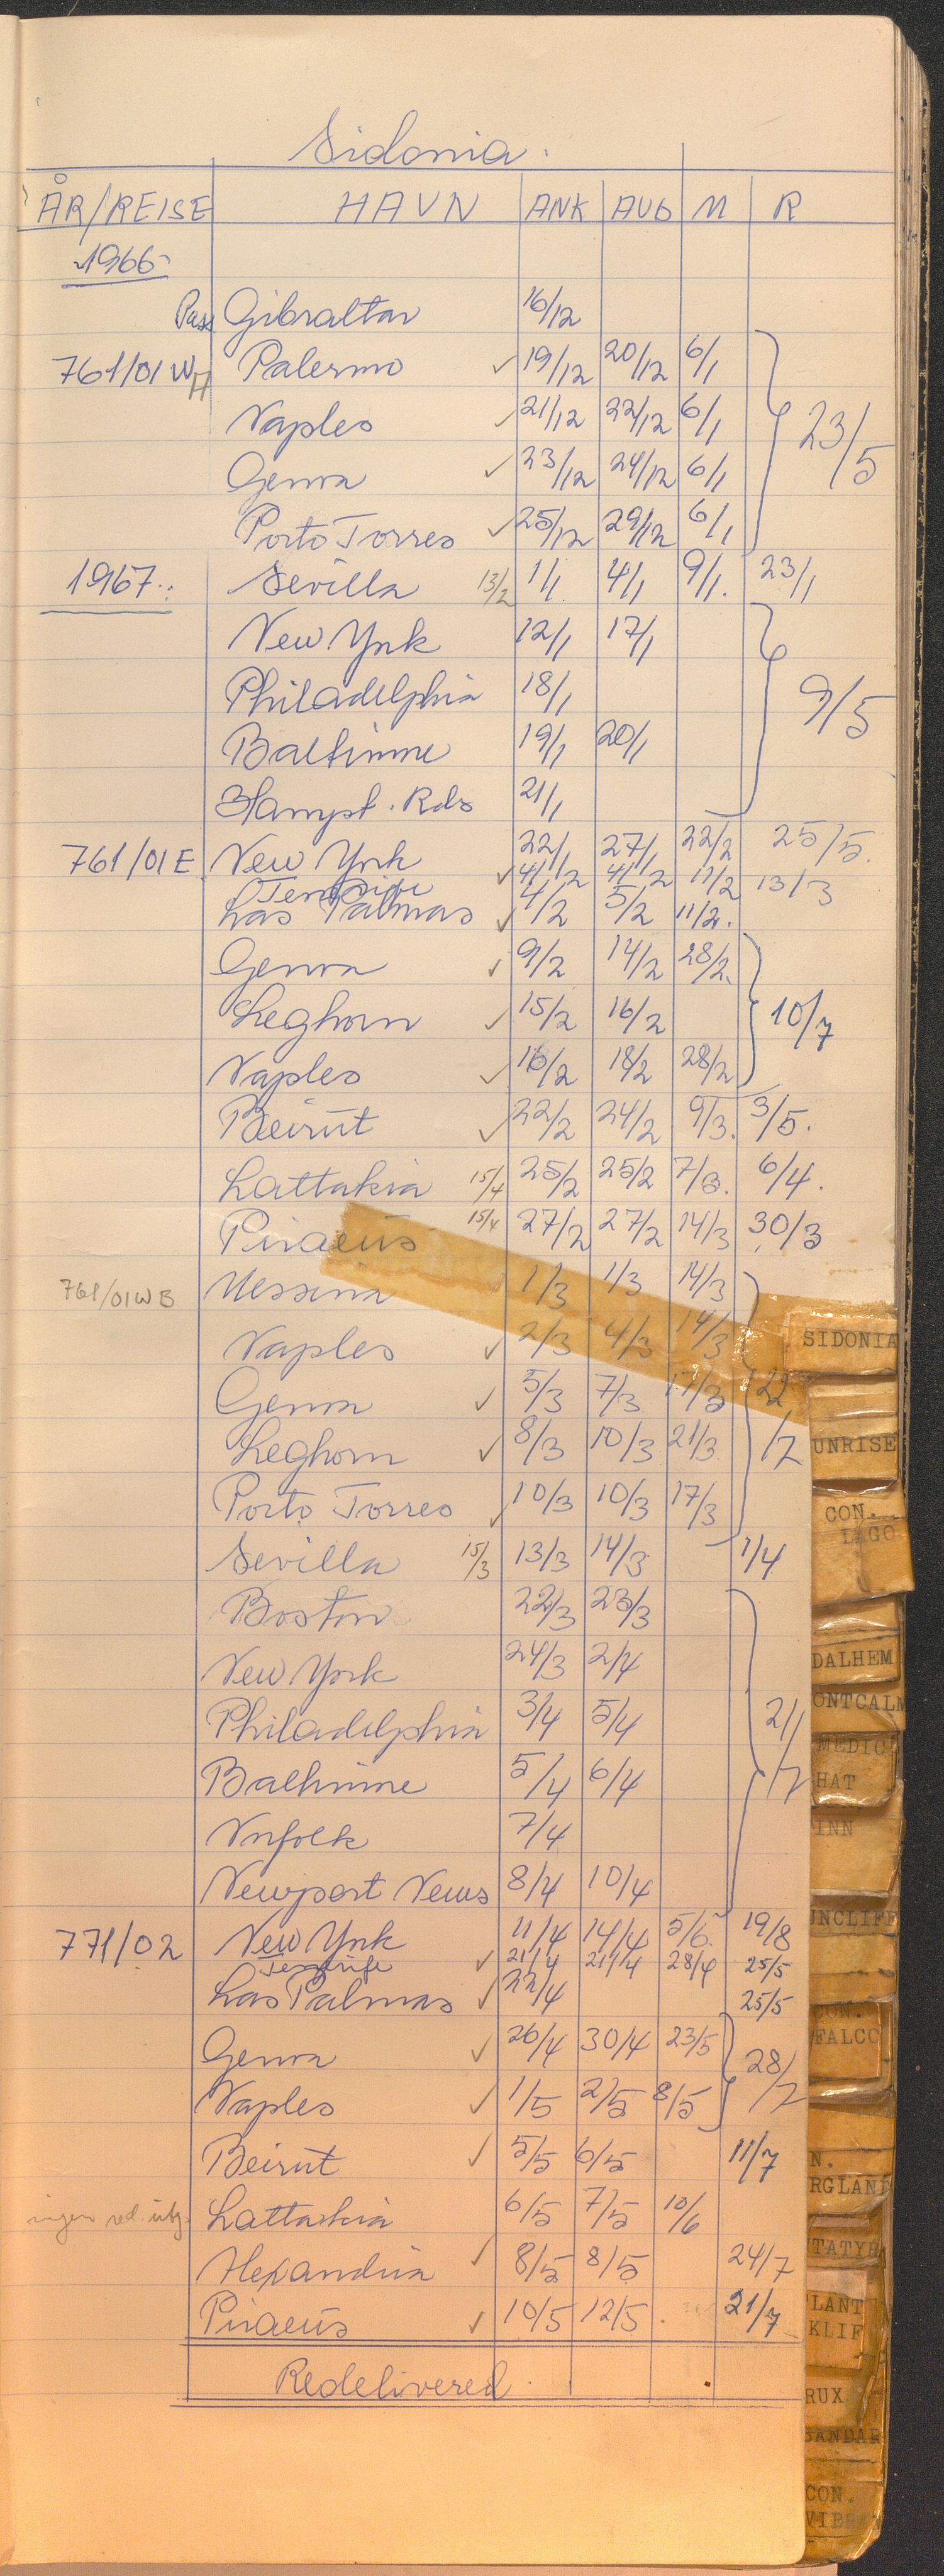 Sidonia.
ÅR/REISE HAVN ANK AVG M R
1966
Pass Gibraltar 16/12
761/01 WH Palermo ✓ 19/12 20/12 6/1
Naples ✓ 21/12 22/12 6/1 23/5
Genoa ✓ 23/12 24/12 6/1
Porto Torres ✓ 25/12 29/12 6/1
1967 Sevilla 13/2 1/1 4/1 9/1 23/1
New York 12/1 17/1
Philadelphia 18/1 9/5
Baltimore 19/1 20/1
Hampt. Rds 21/1
761/01 E New York 22/1 27/1 22/2 25/5
Teneriffe ✓ 4/2 4/2 11/2 13/3
Las Palmas ✓ 4/2 5/2 11/2
Genoa ✓ 9/2 14/2 28/2
Leghorn ✓ 15/2 16/2 10/7
Naples ✓ 16/2 18/2 28/2
Beirut ✓ 22/2 24/2 9/3 3/5
Lattakia 15/4 25/2 25/2 7/3 6/4
Piraeus 15/4 27/2 27/2 14/3 30/3
761/01 WB Messina 1/3 1/3 14/3
Naples ✓ 2/3 4/3 14/3
Genoa ✓ 5/3 7/3 17/3 22/7
Leghorn ✓ 8/3 10/3 21/3
Porto Torres ✓ 10/3 10/3 17/3
Sevilla 15/3 13/3 14/3 1/4
Boston 22/3 23/3
New York 24/3 2/4
Philadelphia 3/4 5/4 21/7
Baltimore 5/4 6/4
Norfolk 7/4
Newport News 8/4 10/4
771/02 New York 11/4 14/4 5/6 19/8
Tenerife ✓ 21/4 21/4 28/4 25/5
Las Palmas ✓ 22/4 25/5
Genoa ✓ 26/4 30/4 23/5 28/7
Naples ✓ 1/5 2/5 8/5
Beirut ✓ 5/5 6/5 11/7
ingen red. utg. Lattakia 6/5 7/5 10/6
Alexandria ✓ 8/5 8/5 24/7
Piraeus ✓ 10/5 12/5 21/7
Redelivered
SIDONIA
UNRISE
CON.
LAGO
DALHEM
ONTCALM
MEDIC
HAT
INN
UNCLIFF
CON.
FALCO
N.
RGLAND
TATYR
LANT
KLIF
RUX
BANDAR
CON.
VIB